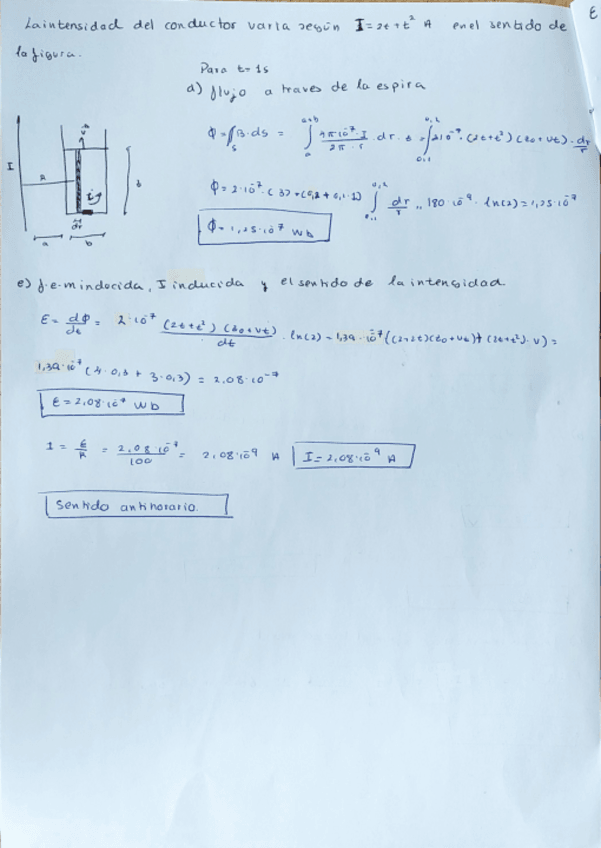 La intensidad del conductor varía según I = 2t + t² A en el sentido de
la figura.
Para t = 1s
a) flujo a traves de la espira
I
R
v
b
i
dr
a b
Φ = ∫∫_S B·ds = ∫_a^{a+b} 4π10⁻⁷·I / 2π·r · dr · = ∫_{0,1}^{0,2} 2·10⁻⁷ · (2t+t²) (b₀+vt) · dr/r
∫_{0,1}^{0,2} dr/r = 180·10⁻⁹ · ln(2) = 1,25·10⁻⁷
Φ = 1,25·10⁻⁷ Wb
e) f.e.m indocida, I inducida y el sentido de la intensidad
ε = dΦ/dt = 2·10⁻⁷ (2t+t²) (b₀+vt) / dt · ln(2) = 1,39·10⁻⁷ ((2+2t)(b₀+vt) + (2t+t²)·v) =
1,39·10⁻⁷ (4·0,3 + 3·0,3) = 2,08·10⁻⁷
ε = 2,08·10⁻⁷ Wb
I = ε/R = 2,08·10⁻⁷ / 100 = 2,08·10⁻⁹ A I = 2,08·10⁻⁹ A
Sentido antihorario.